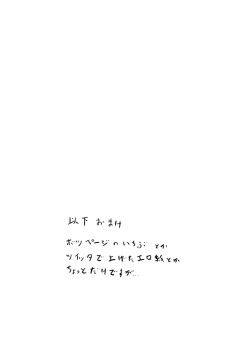 以下 おまけ
ボツページのいちぶとか
ツイッタで上げたエロ絵とか
ちょっとだけですが…